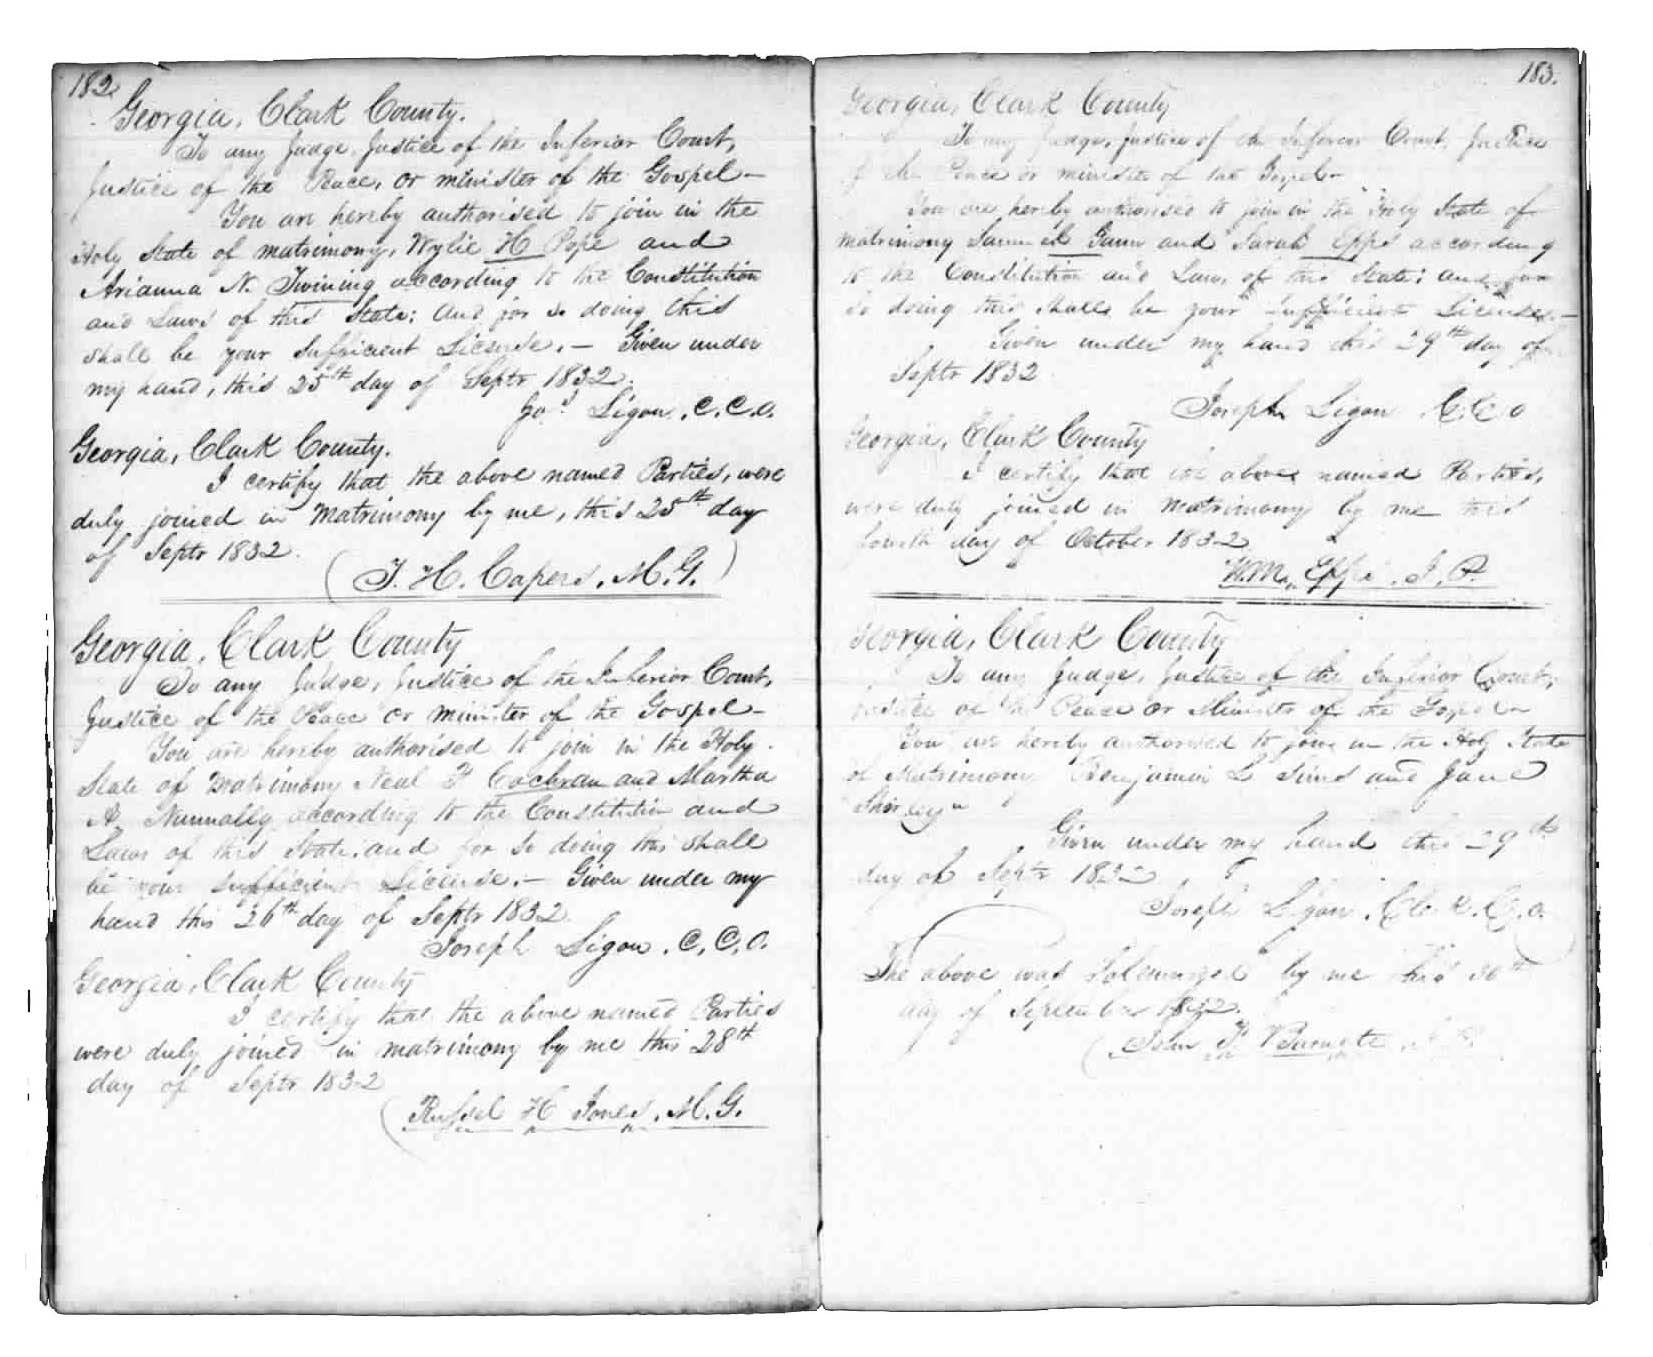 182.
Georgia, Clark County.
To any Judge, Justice of the Inferior Court,
Justice of the Peace, or minister of the Gospel –
You are hereby authorised to join in the
Holy State of matrimony, Wylie H Pope and
Arianna N. Twining according to the Constitution
and Laws of this State: And for so doing this
shall be your sufficient License. – Given under
my hand, this 25th day of Septr 1832.
Jos. Ligon, C.C.O.
Georgia, Clark County.
I certify that the above named Parties, were
duly joined in Matrimony by me, this 25th day
of Septr 1832.
J. H. Capers, M.G.
Georgia, Clark County
To any Judge, Justice of the Inferior Court,
Justice of the Peace or minister of the Gospel –
You are hereby authorised to join in the Holy
State of Matrimony Neal F Cochran and Martha
A. Nunnally according to the Constitution and
Laws of this State, and for so doing this shall
be your sufficient License. – Given under my
hand this 26th day of Septr 1832.
Joseph Ligon, C.C.O.
Georgia, Clark County
I certify that the above named Parties
were duly joined in matrimony by me this 28th
day of Septr 1832
Russel H Jones, M.G.
183.
Georgia, Clark County
To any Judge, justice of the Inferior Court, Justice
of the Peace or minister of the Gospel –
You are hereby authorised to join in the Holy State of
matrimony Samuel Gann and Sarah Epps according
to the Constitution and Laws of this State: and for
so doing this shall be your sufficient License. –
Given under my hand this 29th day of
Septr 1832
Joseph Ligon C.C.O
Georgia, Clark County
I certify that the above named Parties,
were duly joined in Matrimony by me this
fourth day of October 1832
Wm. Epps J.P.
Georgia, Clark County
To any Judge, Justice of the Inferior Court,
Justice of the Peace or Minister of the Gospel –
You are hereby authorised to join in the Holy State
of Matrimony Benjamin L Sims and Jane
Shirley
Given under my hand this 29th
day of Septr 1832
Joseph Ligon, Clerk C.O.
The above was Solemnized by me this 30th
day of September 1832.
John F